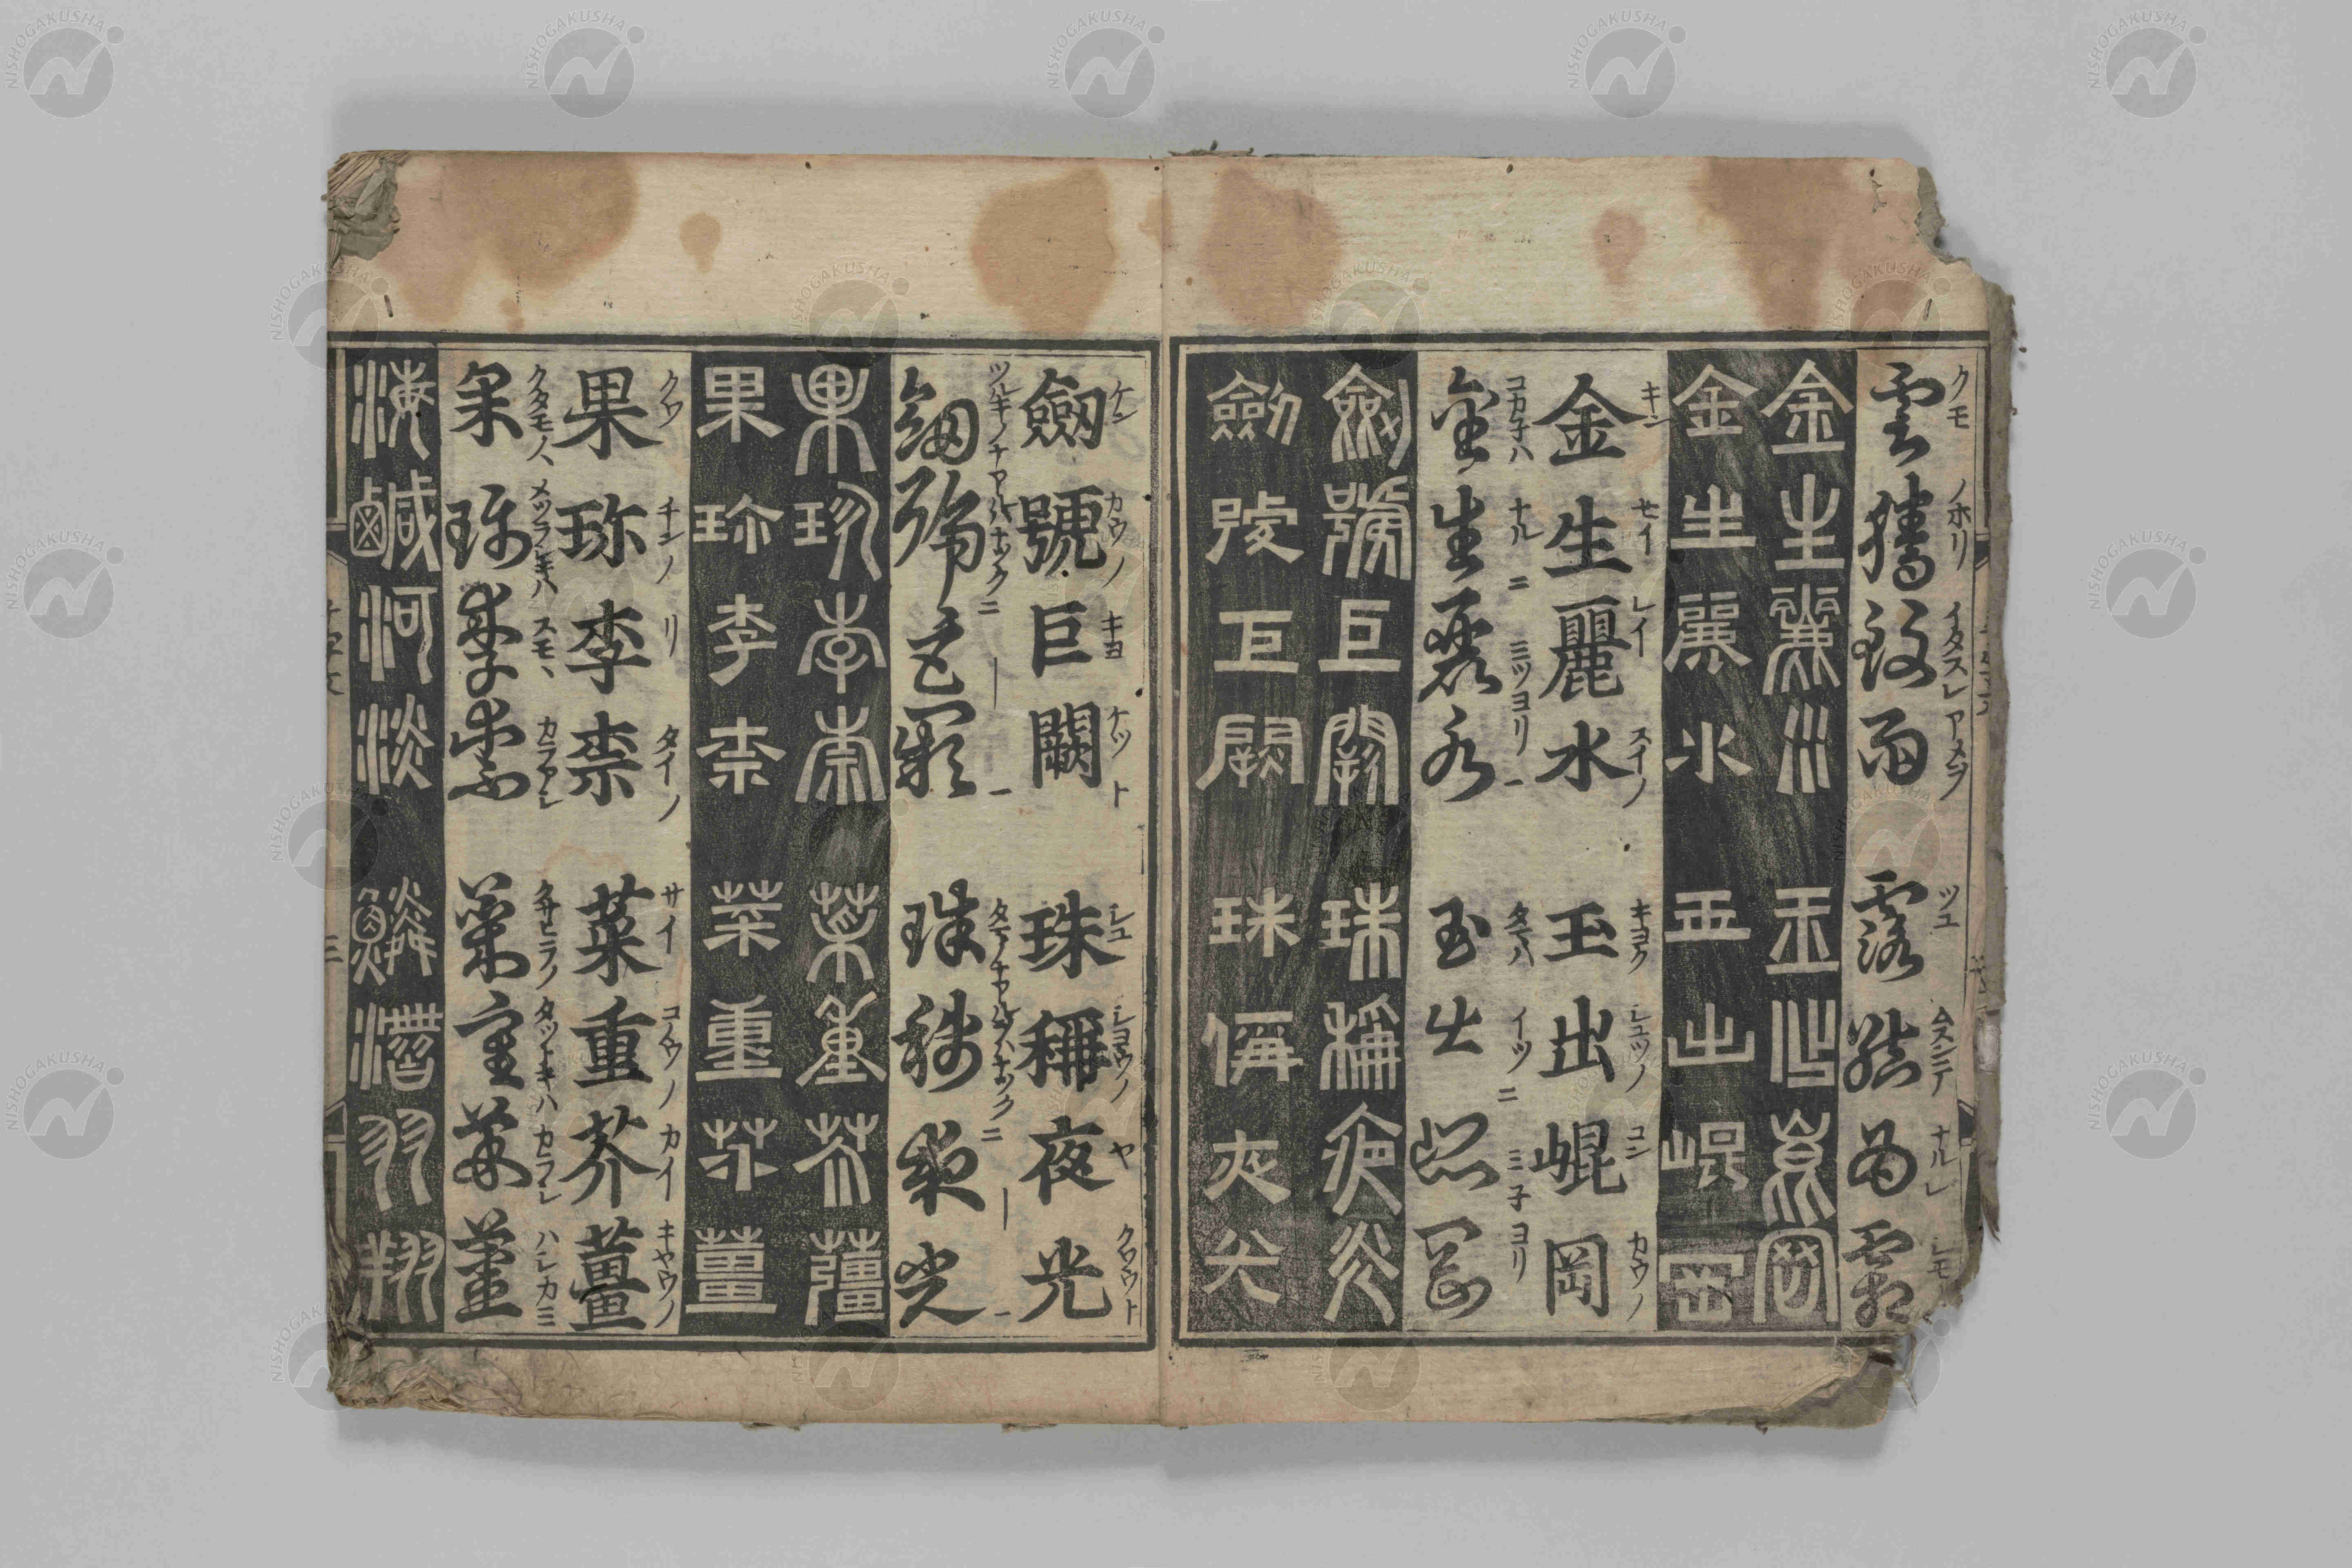 雲騰致雨　露結爲霜
クモ　ノホリ　イタスレ　アメヲ　ツユ　ムスンテ　ナルレ　シモ
金生麗水　玉出崐岡
金生麗水　玉出崐岡
キン　セイ　レイ　スイノ　キヨク　シユツノ　コン　カウノ
金生麗水　玉出崐岡
コカ子ハ　ナル二　ミツヨリ一　タマハ　イツ二　ミ子ヨリ
金生麗水　玉出崐岡
劒號巨闕　珠稱夜光
劒號巨闕　珠稱夜光
ケン　カウノ　キヨ　ケツト　シユ　シヨウノ　ヤ　クワウト
劒號巨闕　珠稱夜光
劒號巨闕　珠稱夜光
果珎李柰　菜重芥薑
果珎李柰　菜重芥薑
クワ　チンノ　リ　タイノ　サイ　コヤウノ　カイ　キヤウノ
果珎李柰　菜重芥薑
クタモノハ　メツラシキハ　スモヽ　カラアレ　クサヒラノ　タツトキハ　カラシ　ハシカミ
果珎李柰　菜重芥薑
海鹹河淡　鱗潛羽翔
三
NISHOGAKUSHA